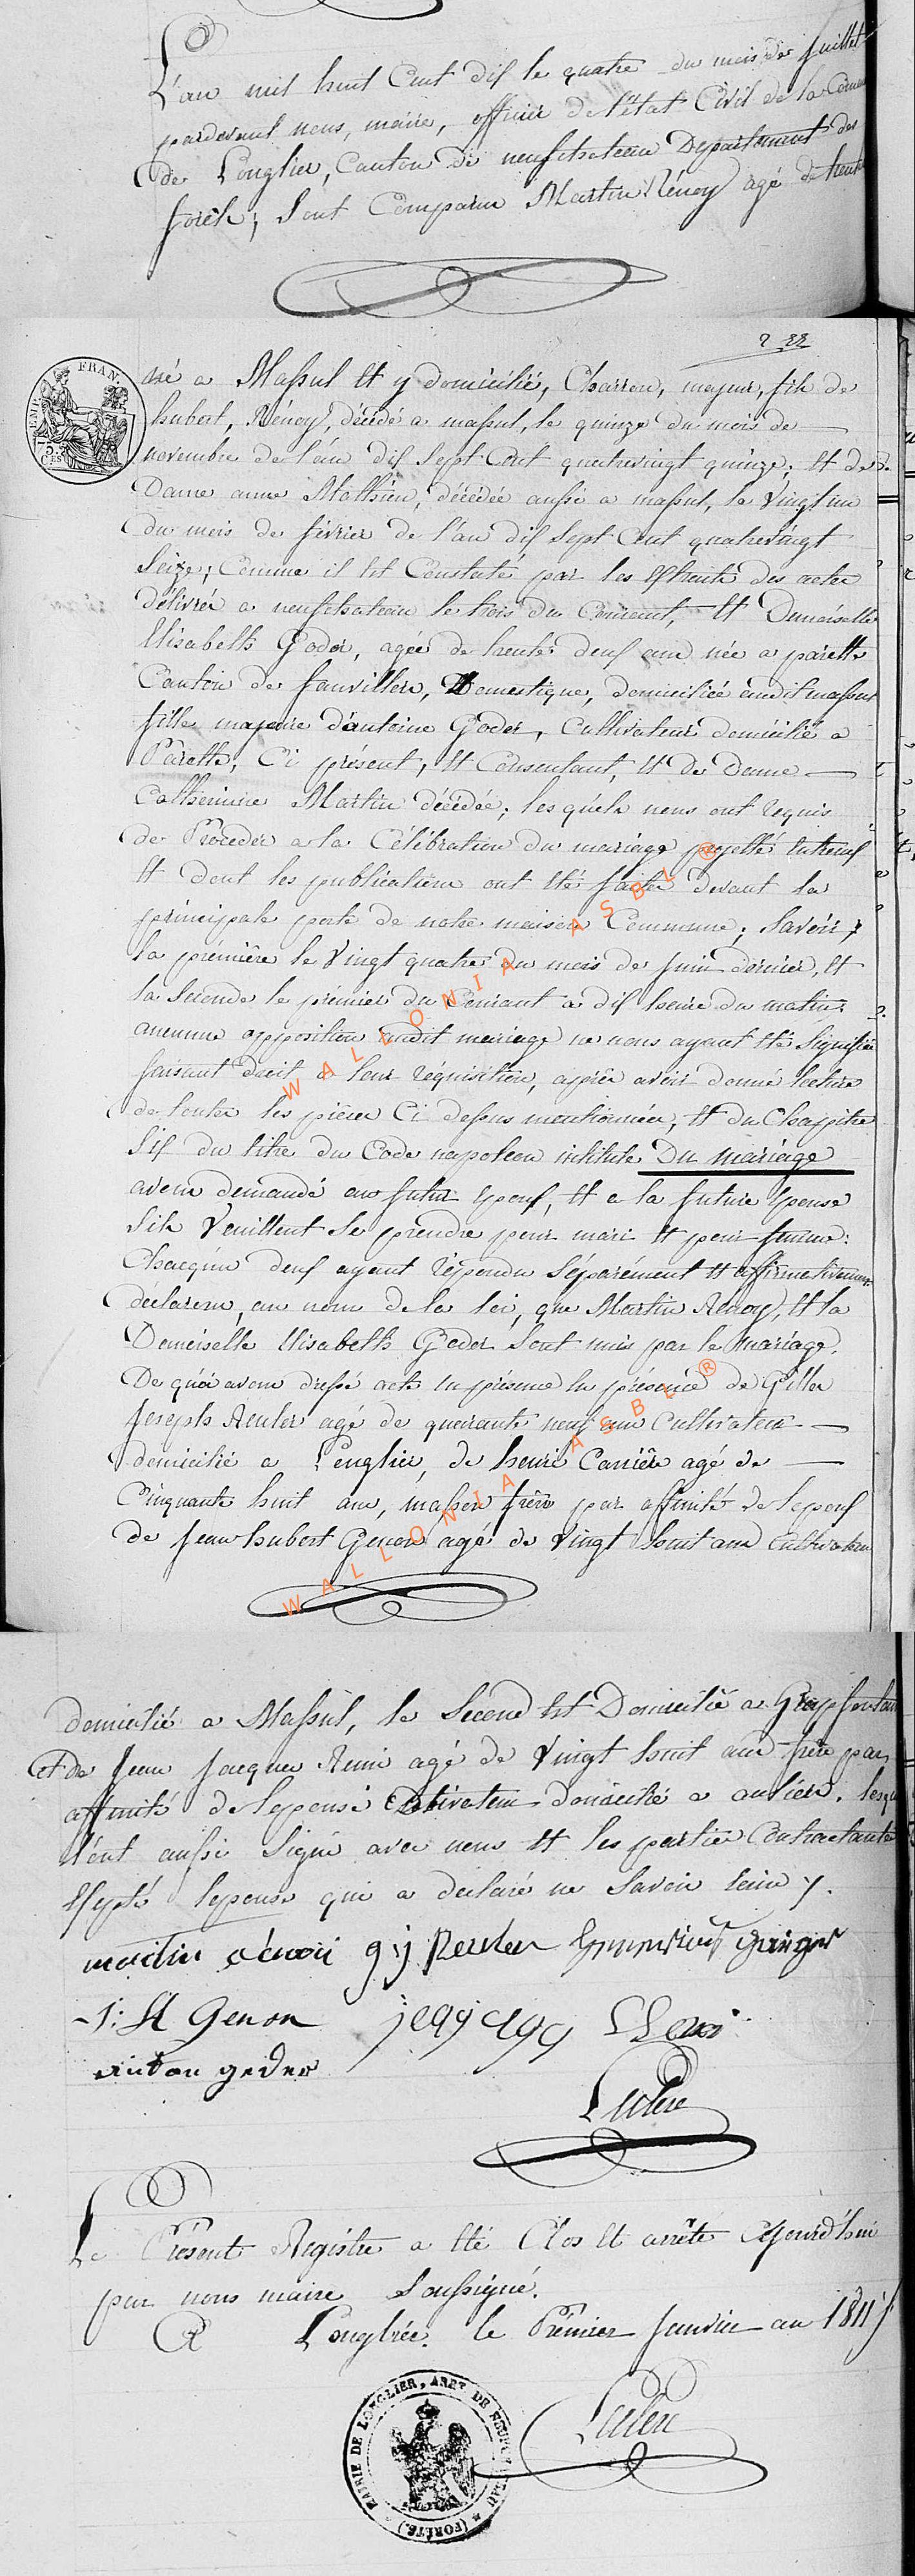 L'an mil huit Cent dix le quatre du mois de Juillet
pardevant nous, maire, officier de l'état Civil de la Comm
de Longlier, Canton de neufchateau Departement des
forêts; sont Comparu Martin Rénoy agé de trente
2 22
né a Massul et y domicilié, Charron, majeur, fils de
hubert, Rénoy, décédé a massul, le quinze du mois de
novembre de l'an dix sept Cent quatrevingt quinze; et de
Dame anne Mathieu, décédée aussi a massul, le vingt un
du mois de février de l'an dix sept Cent quatrevingt
Seize; Comme il est Constaté par les Extraits des actes
délivrés a neufchateau le trois du Courant, et Demoiselle
Elisabeth Goder, agée de trente deux ans née a parette
Canton de fauvillers, Domestique, domiciliée audit massul
fille majeure d'antoine Goder, Cultivateur domicilié a
Parette, Ci présent, et Consentant, et de Dame
Catherinne Martin décédée; lesquels nous ont requis
de Proceder a la Célébration du mariage projetté entreux
et dont les publications ont été faites devant la
principale porte de notre maison Commune; Savoir;
la première le vingt quatre du mois de Juin dernier, et
la Seconde le premier du Courant a dix heure du matin.
aucunne opposition audit mariage ne nous ayant été Signifiée
faisant droit a leur réquisition, après avoir donné lecture
de toutes les pièces Ci dessus mentionnées, et du Chapitre
Six du titre du Code napoleon intitulé Du mariage
avons demandé au futur Epoux, et a la future Epouse
S'ils veuillent se prendre pour mari et pour femme:
Chacqun deux ayant répondu Séparément et affirmativement
declarons, au nom de la loi, que Martin Rénoy, et la
Demoiselle Elisabeth Goder Sont unis par le mariage.
De quoi avons dressé acte en présence en présence de Gille
Joseph Reuler agé de quarante neuf ans Cultivateur
domicilié a Longlier, de henri Carrière agé de
Cinquante huit ans, maçon frère par affinité de lepoux
de Jean hubert Genon agé de vingt huit ans Cultivateur
domicilié a Massul, le Second est Domicilié a Grapfontaine
et de Jean Jacque Remi agé de vingt huit ans frère par
affinité de lepouse Cultivateur domicilié a anlier. lesqu
l'ont aussi Signé avec nous et les parties Contractantes
Excepté lepouse qui a declaré ne Savoir Ecrire.
martin rénoi g j Reuler
J: H Genon
anton goder
Leclere
Le Présent Régistre a été Clos et arrêté aujourd'hui
par nous maire Soussigné.
A Longlier. le Premier Janvier an 1811
Leclere
MAIRIE DE LONGLIER, ARRT DE NEUFCHATEAU (FORÊTS)
EMP. FRAN.
WALLONIA ASBL ®
WALLONIA ASBL ®